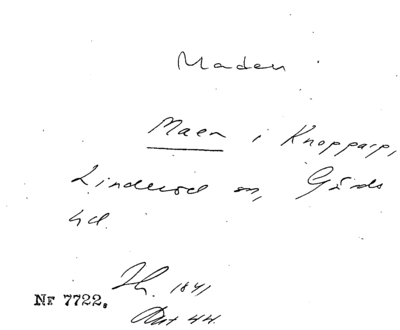 Maden
Maen i Knopparp,
Linderöd sn, Gärds
hd.
1841
Nr 7722.
44.